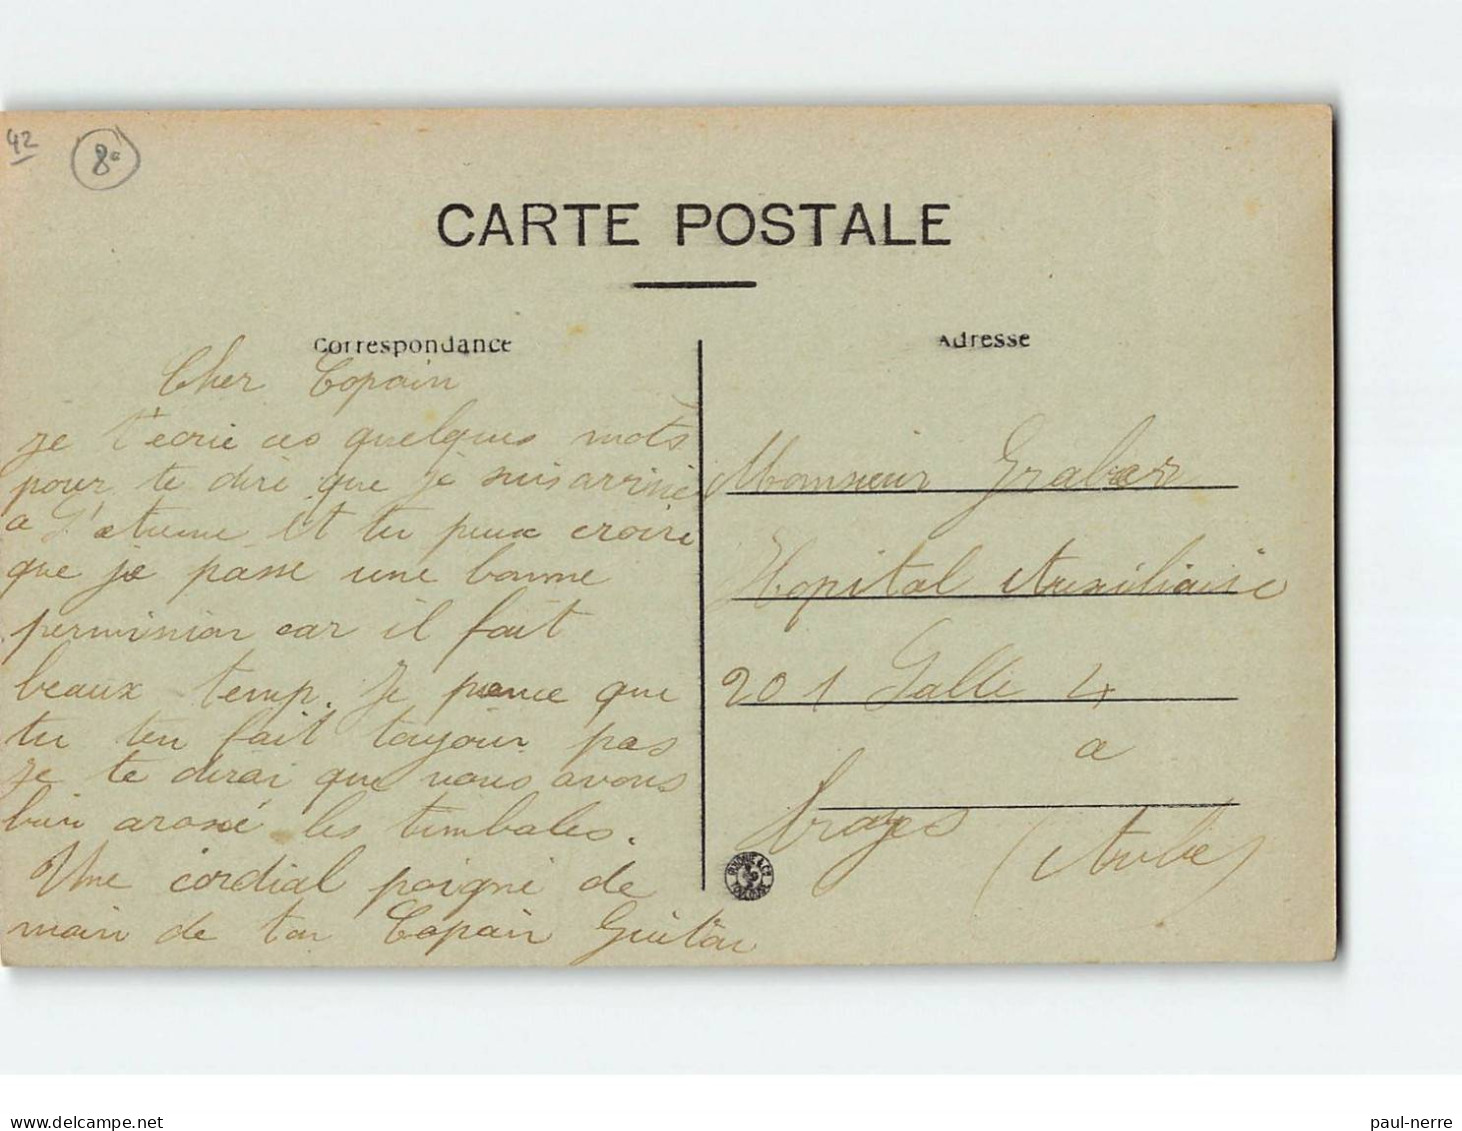 42
8€
CARTE POSTALE
Correspondance
Adresse
Cher Copain
je t'écrie ces quelques mots
pour te dire que je suis arrivé
a L'etienne et tu peux croire
que je passe une bonne
permission car il fait
beaux temp. Je pence que
tu ten fait toujour pas
je te dirai que nous avons
bien arosé les timbales.
Une cordial poigné de
main de ton Copain Guiton
Monsieur Graber
Hopital Auxiliaire
201 Salle 4
a
troyes
(Aube)
paul-nerre